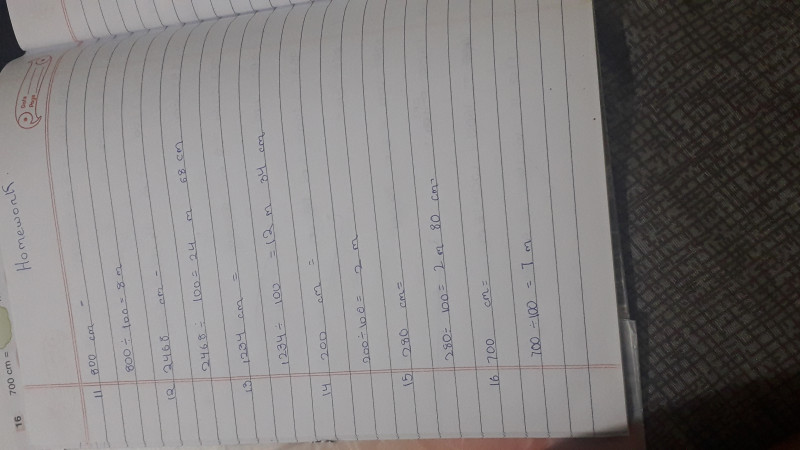 16 700 cm =
Date
Page
Homework
11 800 cm =
800 ÷ 100 = 8 m
12 2468 cm =
2468 ÷ 100 = 24 m 68 cm
13 1234 cm =
1234 ÷ 100 = 12 m 34 cm
14 200 cm =
200 ÷ 100 = 2 m
15 280 cm =
280 ÷ 100 = 2 m 80 cm
16 700 cm =
700 ÷ 100 = 7 m